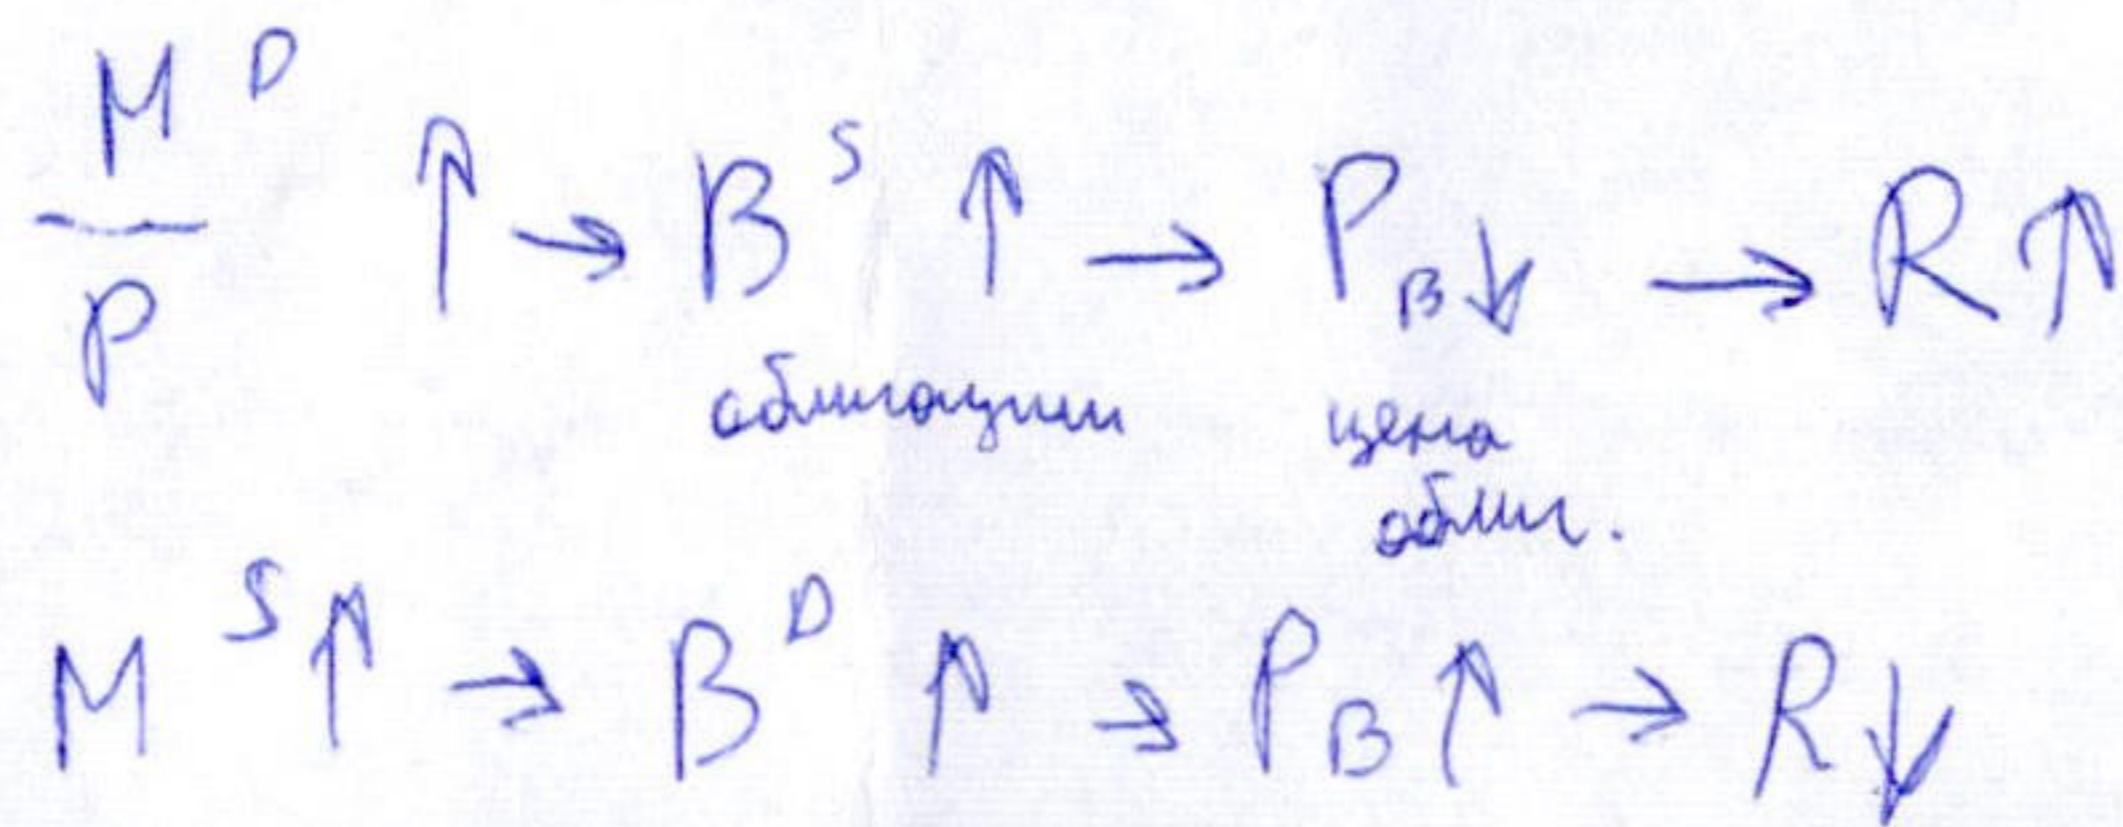 M^D / P ↑ → B^S ↑ → P_B ↓ → R ↑
облигации цена
облиг.
M^S ↑ → B^D ↑ → P_B ↑ → R ↓